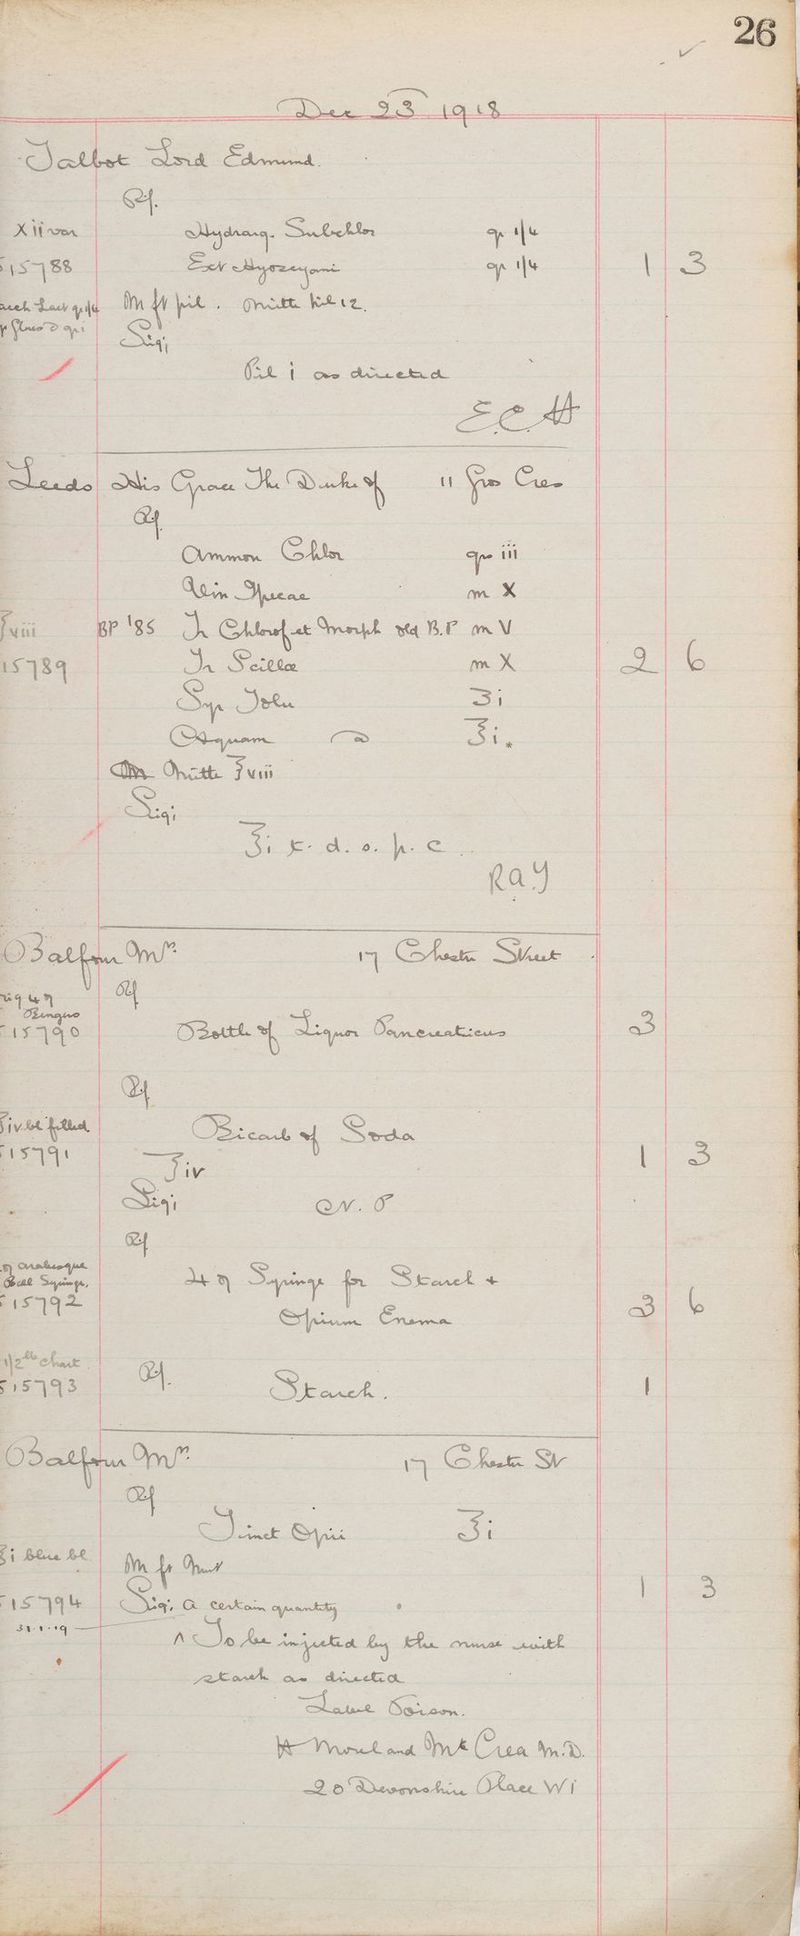 26
Dec 23 1918
Talbot Lord Edmund.
Rf.
xii var Hydrarg. Subchlor gr 1/4
15788 Ext Hyoscyami gr 1/4 1 3
Sacch Lact gr 1/4 M ft pil. Mitte pil 12.
gr i
Sig;
Pil i as directed
E.C.H
Leeds His Grace The Duke of 11 Gros Cres
Rf.
Ammon Chlor grs iii
Vin Ipecac m X
℥viii BP '85 Tr Chlorof et Morph old B.P m V
15789 Tr Scillae m X 2 6
Syr Tolu ʒi
Aquam a ℥i.
M Mitte ℥viii
Sig;
℥i t. d. s. p. c
R.A.Y
Balfour Mrs. 17 Chester Street
Rf
orig 4 oz
Bengers
15790 Bottle of Liquor Pancreaticus 3
Rf.
℥iv bl filled Bicarb of Soda
15791 ℥iv 1 3
Sig; N. P
Rf
Ball Syringe. 4 oz Syringe for Starch +
15792 Opium Enema 3 6
1/2 lb chart
15793 Rf. Starch. 1
Balfour Mrs. 17 Chester St
Rf
Tinct Opii ℥i
℥i blue bl M ft Mist
15794 Sig; A certain quantity 1 3
31.1.19
^ To be injected by the nurse with
starch as directed
Label Poison.
H Moreland McCrea M.D.
20 Devonshire Place W1